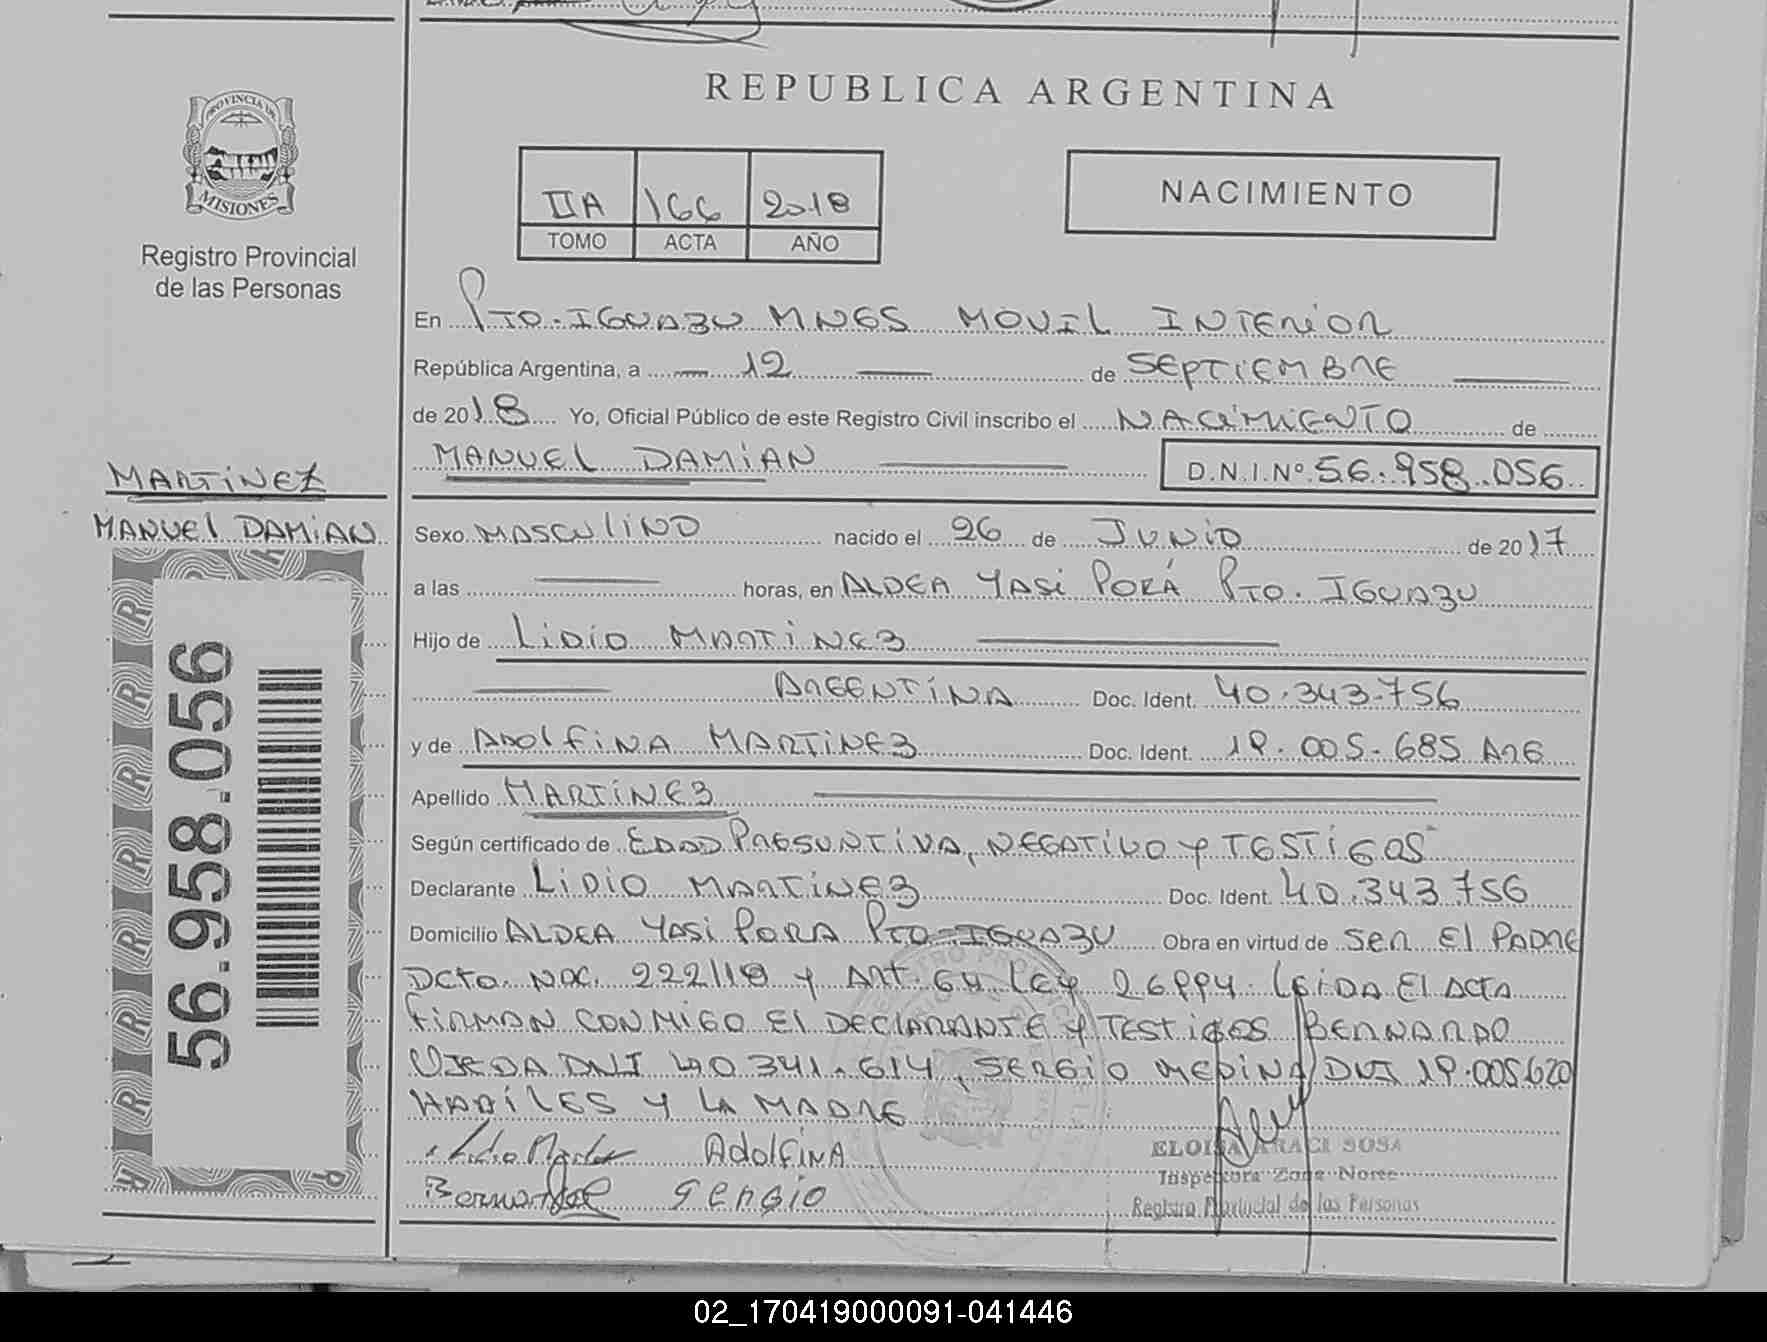 PROVINCIA DE
MISIONES
Registro Provincial
de las Personas
REPUBLICA ARGENTINA
IIA 166 2018
TOMO ACTA AÑO
NACIMIENTO
En PTO. IGUAZU MNES MOVIL INTERIOR
República Argentina, a 12 de SEPTIEMBRE
de 2018 Yo, Oficial Público de este Registro Civil inscribo el NACIMIENTO de
MANUEL DAMIAN D.N.I.Nº 56.958.056
MARTINEZ
MANUEL DAMIAN
56.958.056
Sexo MASCULINO nacido el 26 de JUNIO de 2017
a las horas, en ALDEA YASI PORÁ PTO. IGUAZU
Hijo de LIDIO MARTINEZ
ARGENTINA Doc. Ident. 40.343.756
y de ADOLFINA MARTINEZ Doc. Ident. 19.005.685 ARG
Apellido MARTINEZ
Según certificado de EDAD PRESUNTIVA, NEGATIVO Y TESTIGOS
Declarante LIDIO MARTINEZ Doc. Ident. 40.343.756
Domicilio ALDEA YASI PORA PTO IGUAZU Obra en virtud de SER EL PADRE
DCTO. NAC. 222/18 Y ART. 64 LEY 26994. LEIDA EL ACTA
FIRMAN CONMIGO EL DECLARANTE Y TESTIGOS BERNARDO
OJEDA DNI 40.341.614, SERGIO MEDINA DNI 19.005.620
HABILES Y LA MADRE
ADOLFINA
SERGIO
ELOISA ARACI SOSA
Inspectora Zona Norte
Registro Provincial de las Personas
02_170419000091-041446